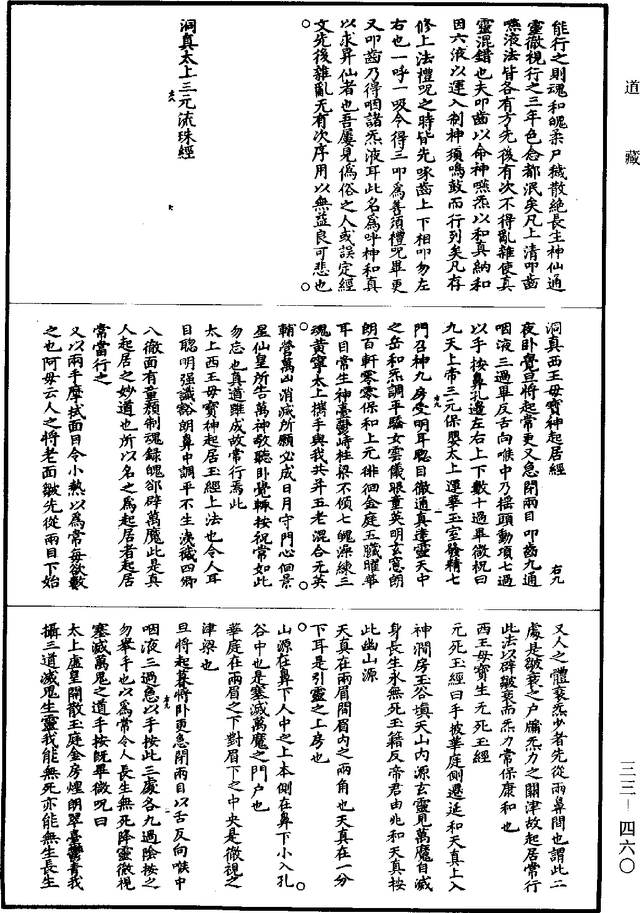 道藏
能行之則魂和魄柔尸穢散絕長生神仙通
靈徹視行之三年色念都泯矣凡上清叩齒
嚥液法皆各有方先後有次不得亂雜使真
靈混錯也夫叩齒以命神嚥炁以和真納和
因六液以運入制神須鳴鼓而行列矣凡存
修上法禮祝之時皆先啄齒上下相叩勿左
右也一呼一吸令得三叩為善須禮祝畢更
又叩齒乃得咽諸炁液耳此名為呼神和真
以求昇仙者也吾屢見偽俗之人或誤定經
文先後雜亂无有次序用以無益良可悲也
洞真太上三元流珠經
洞真西王母寶神起居經
右九
夜卧覺旦將起常更又急閉兩目叩齒九通
咽液三過畢反舌向喉中乃搖頭動項七過
以手按鼻孔邊左右上下數十過畢微祝曰
九天上帝三元保嬰太上運華玉室發精七
門召神九房受明耳聰目徹通真達靈天中
之岳和炁調平驕女雲儀眼童英明玄窻朗
朗百軒零零保和上元徘徊金庭五臟曜華
耳目常生神臺鬱峙柱梁不傾七魄澡練三
魂黃寧太上攜手與我共并五老混合元英
輔營萬凶消滅所願必成日月守門心伺景
星仙皇所告萬神敬聽卧覺輒按祝常如此
勿忘也真道雖成故常行焉此
太上西王母寶神起居玉經上法也令人耳
目聰明强識豁朗鼻中調平不生洟穢四響
八徹面有童顏制魂錄魄卻辟萬魔此是真
人起居之妙道也所以名之為起居者起居
常當行之
又以兩手摩拭面目令小熱以為常每欲數
之也阿母云人之將老面皺先從兩目下始
又人之體衰炁少者先從兩鼻間也謂此二
處是皺衰之戶牖炁力之關津故起居常行
此法以辟皺衰而炁力常保康和也
西王母寶生无死玉經
元死玉經曰手披華庭側遷延和天真上入
神澗房玉谷填天山內源玄靈見萬魔自滅
身長生永無死玉籍反帝君由兆和天真按
此幽山源
天真在兩眉間眉內之兩角也天真在一分
下耳是引靈之上房也
山源在鼻下人中之上本側在鼻下小入孔
谷中也是塞滅萬魔之門戶也
華庭在兩眉之下對眉下之中央是徹視之
津梁也
旦將起暮將卧更急閉兩目以舌反向喉中
咽液三過急以手按此三處各九過陰按之
勿舉手也以為常令人長生無死降靈徹視
塞滅萬鬼之道手按既畢微祝曰
太上虛皇開散玉庭金房煌朗翠臺鬱青我
攝三道滅鬼生靈我能無死亦能無生長生
三三—四六〇